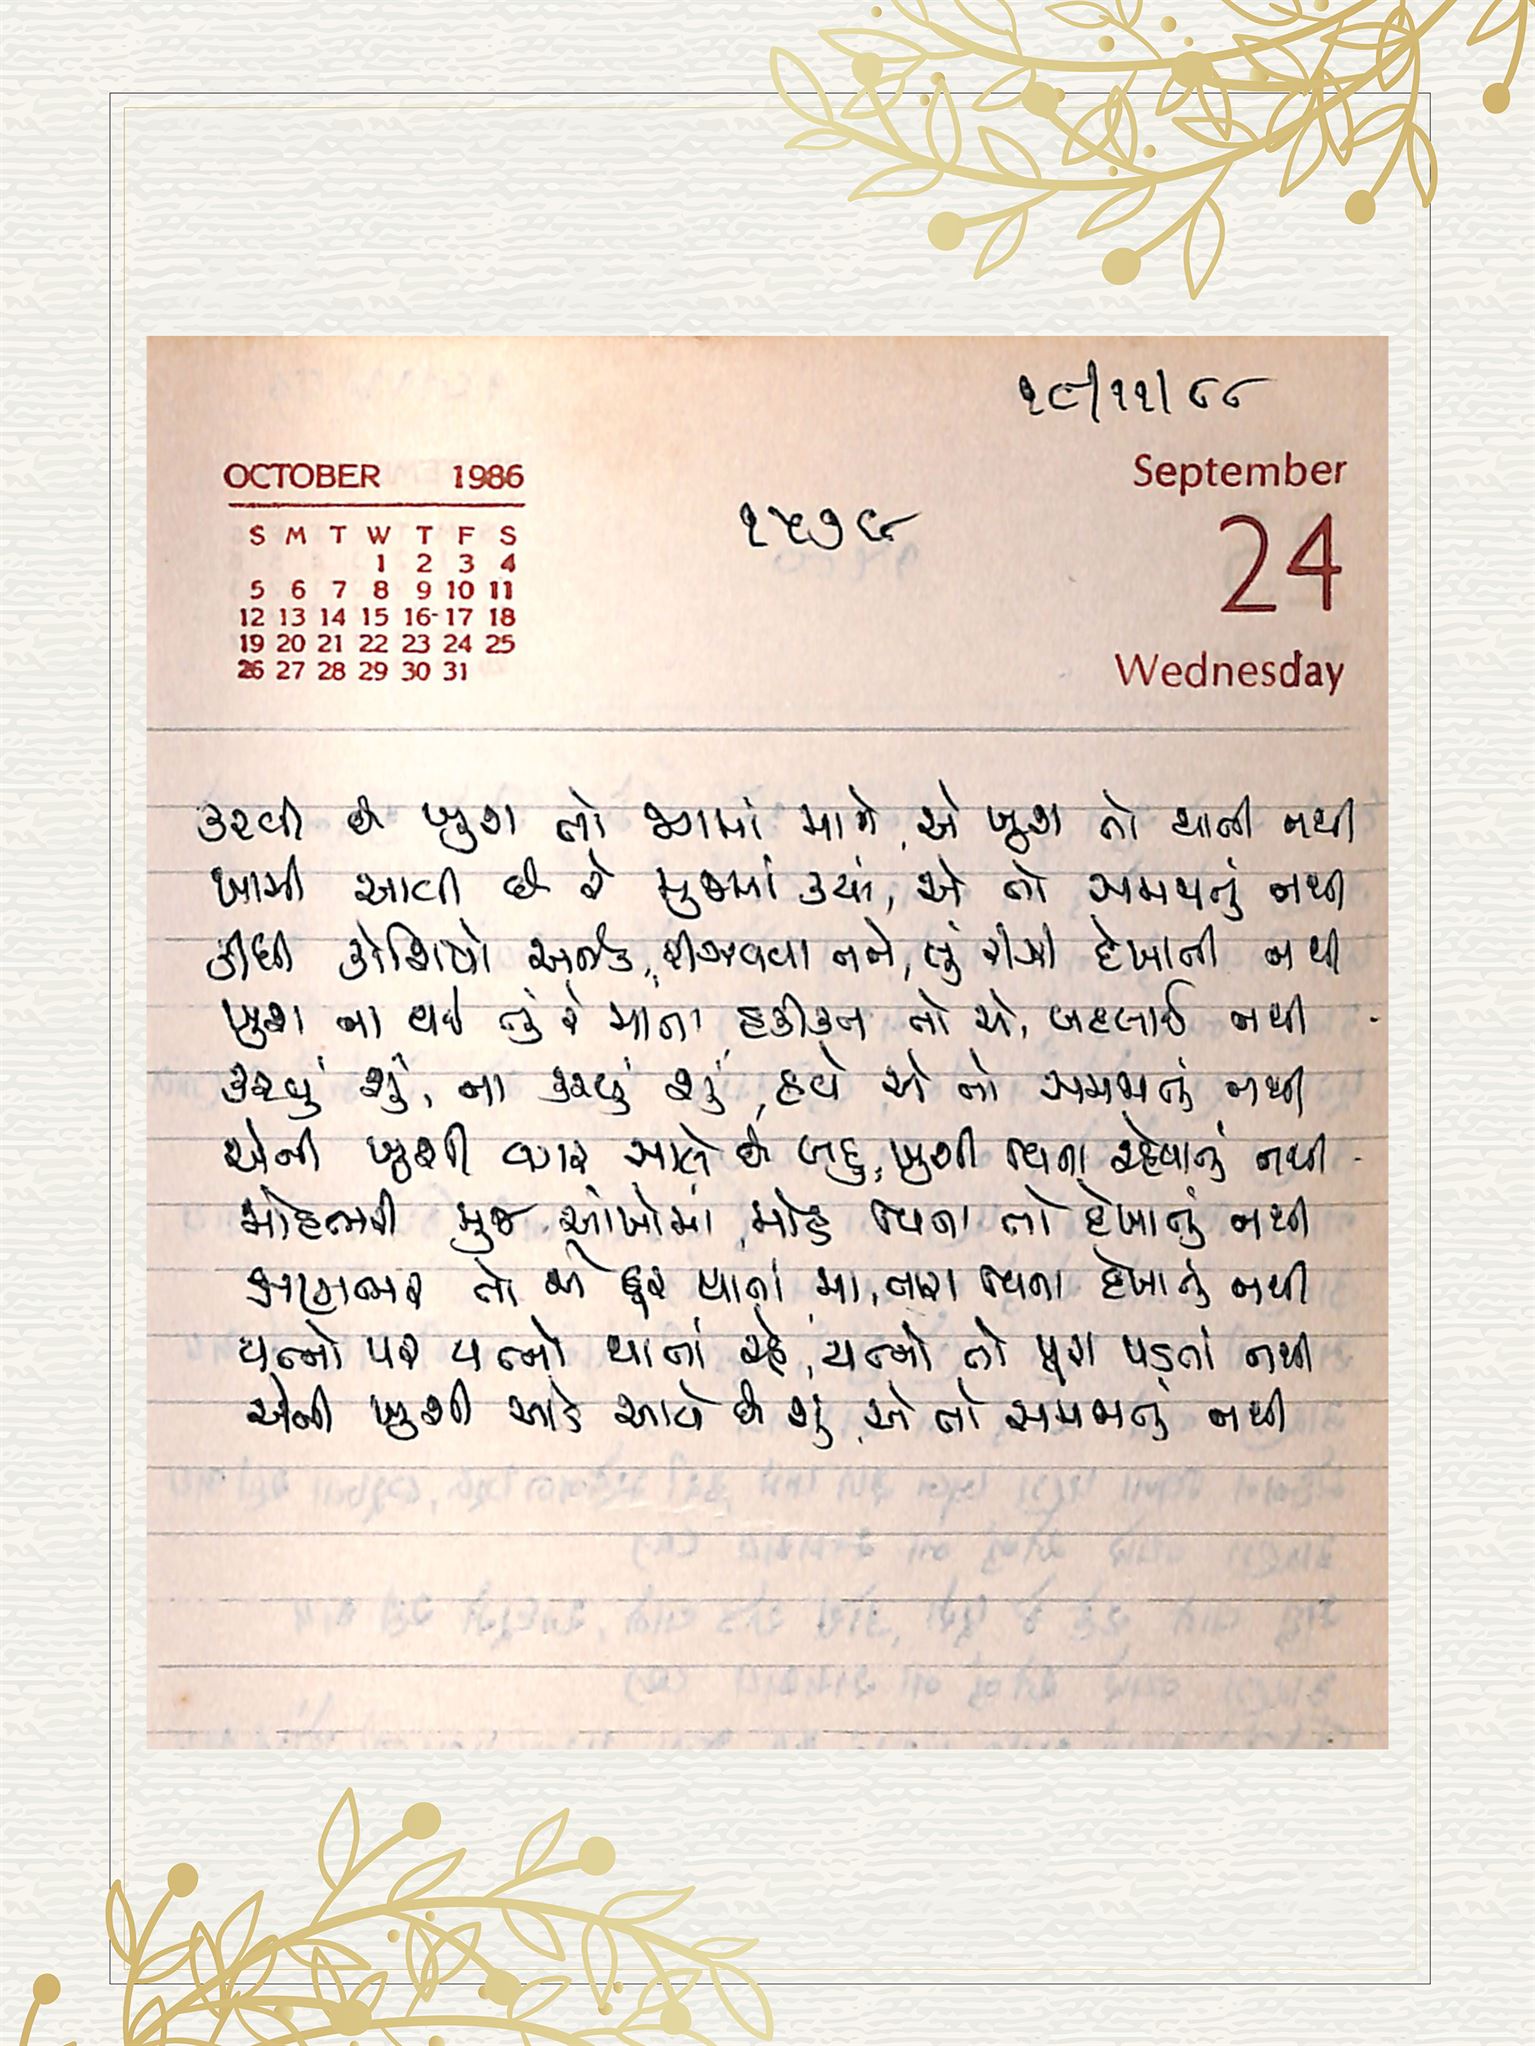 ૧૯/૧૧/૮૮
OCTOBER 1986
S M T W T F S
1 2 3 4
5 6 7 8 9 10 11
12 13 14 15 16 17 18
19 20 21 22 23 24 25
26 27 28 29 30 31
૧૫૭૯
September
24
Wednesday
કરવી છે ખુશ તો જગમાં માને, એ ખુશ તો થાતી નથી
ખામી આવી છે રે મુજમાં ક્યાં, એ તો સમજાતું નથી
કીધી કોશિષો અનેક, રીઝવવા તને, તું રીઝી દેખાતી નથી
ખુશ ના થઈ તું રે માતા, હકીકત તો એ, બદલાઈ નથી
કરવું શું, ના કરવું શું, હવે એ તો સમજાતું નથી
એની ખુશી વગર સાલે છે બધું, ખુશી વિના રહેવાનું નથી
મોહભરી મુજ આંખોમાં, મોહ વિના તો દેખાતું નથી
તો છે દૂર થાતાં મા, તારા વિના દેખાતું નથી
યત્નો પર યત્નો થાતાં રહે, યત્નો તો પૂરા પડતાં નથી
એની ખુશી આડે આવે છે શું, એ તો સમજાતું નથી